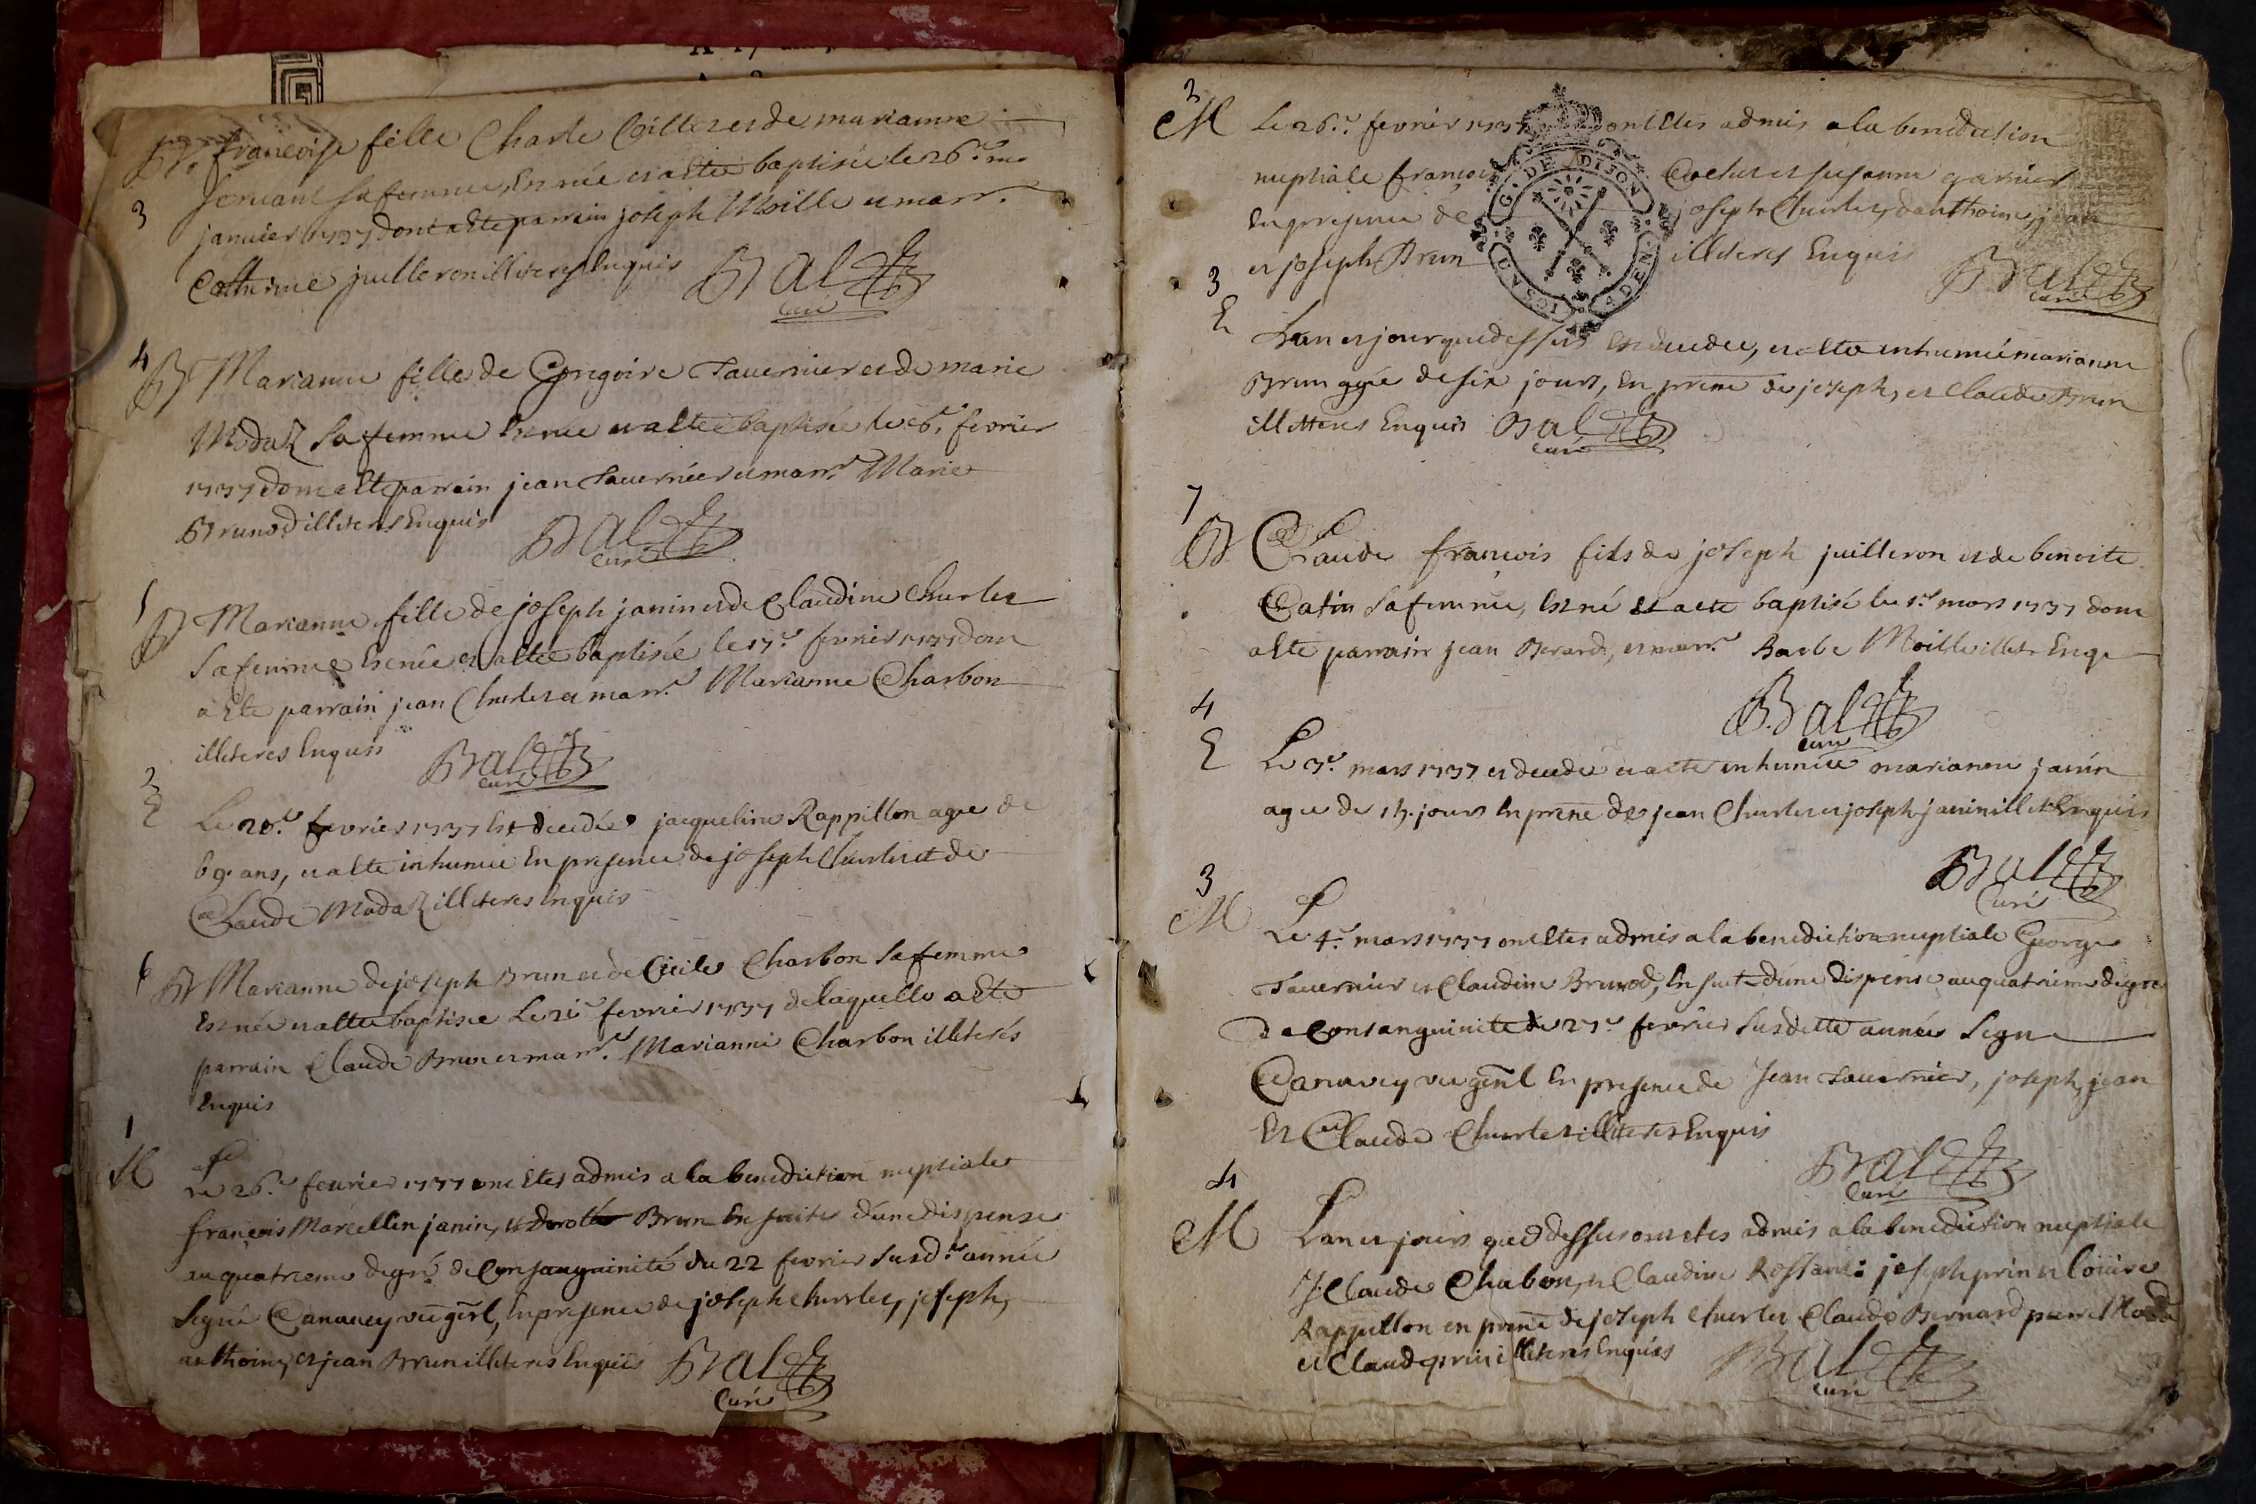 B françoise fille Charle Coillez et de mariamne
3 Jeniant sa femme est née et a eté baptisée le 26.e
janvier 1737 dont a eté parrain joseph Moille et marr.e
Catherine juilleron illiteres Enquis Bal
Curé
4 B Marianne fille de Gregoire Tavernier et de marie
Modaz sa femme Est née et a eté baptisée le 6.e fevrier
1737 dont a eté parrain jean Tavernier et marr.e Marie
Brunod illiteres Enquis Bal
Curé
5 B Marianne fille de joseph janin et de Claudine Churlet
sa femme Est née et a eté baptisée le 17.e fevrier 1737 dont
a Eté parrain jean Churlet et marr.e Marianne Charbon
illiteres Enquis Bal
Curé
2 E Le 20.e fevrier 1737 Est decedée jacqueline Rappillon agee de
69 ans, et a eté inhumée En presence de joseph Churlet et de
Claude Modaz illiteres Enquis
6 B Marianne de joseph Brun et de Cicile Charbon sa femme
Est née et a eté baptisée Le 21.e fevrier 1737 de laquelle a Eté
parrain Claude Brun et marr.e Marianne Charbon illiterés
Enquis
1
M Le 26.e fevrier 1737 ont Etes admis a la benediction neptiale
françois Marcellin janin, et dorothé Brun En suite d'une dispense
au quatrieme degré de Consanguinité du 22 fevrier susd.e année
Signé Canavey vic genl, En presence de joseph Churlet, joseph,
anthoine, et jean Brun illiteres Enquis Bal
Curé
2
M Le 26.e fevrier 1737 ont Etes admis a la benediction
neptiale françois et susanne garnier
En presence de joseph Churlet, d'anthoine, jean
et joseph Brun illiteres Enquis Bal
Curé
G. DE DIJON
3
E L'an et jour que dessus Est decedee, et a eté inhumée marianne
Brun agée de six jours, En prence de joseph, et Claude Brun
illitteres Enquis Bal
Curé
7
B Claude françois fils de joseph juilleron et de benoite
Catin sa femme, Est né et a eté baptisé le 1.er mars 1737 dont
a Eté parrain jean Berard, et marr.e Barbe Moille illit. Enq.
Bal
Curé
4
E Le 3.e mars 1737 est decedée et a eté inhumée marianne janin
agee de 15. jours En prence de jean Churlet et joseph janin illit. Enquis
Bal
Curé
3
M Le 4.e mars 1737 ont Etes admis a la benediction neptiale George
Tavernier et Claudine Brunod, En suite d'une Dispense au quatrieme degré
de Consanguinité du 27.e fevrier susdette année Signe
Canavey vic genl En presence de Jean Tavernier, joseph, jean
Et Claude Churlet illiteres Enquis
Bal
Curé
4
M L'an et jours que dessus ont etes admis a la benediction neptiale
J. Claude Chabon, et Claudine Rossane: joseph prin et Loüise
Rappillon en prence de joseph Churlet Claude Bernard pierre Moda
et Claude prin illiteres Enquis Bal
Curé